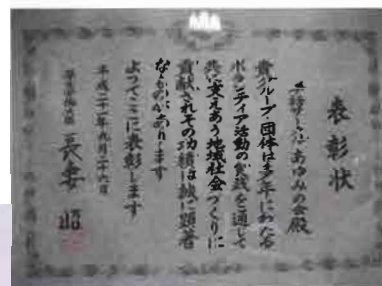 表彰状
あゆみの会殿
貴グループ・団体は多年にわたる
ボランティア活動の実践を通して
共に支えあう地域社会づくりに
貢献されその功績は誠に顕著
なものがあります
よってここに表彰します
平成二十一年九月二十六日
厚生労働大臣 長妻 昭